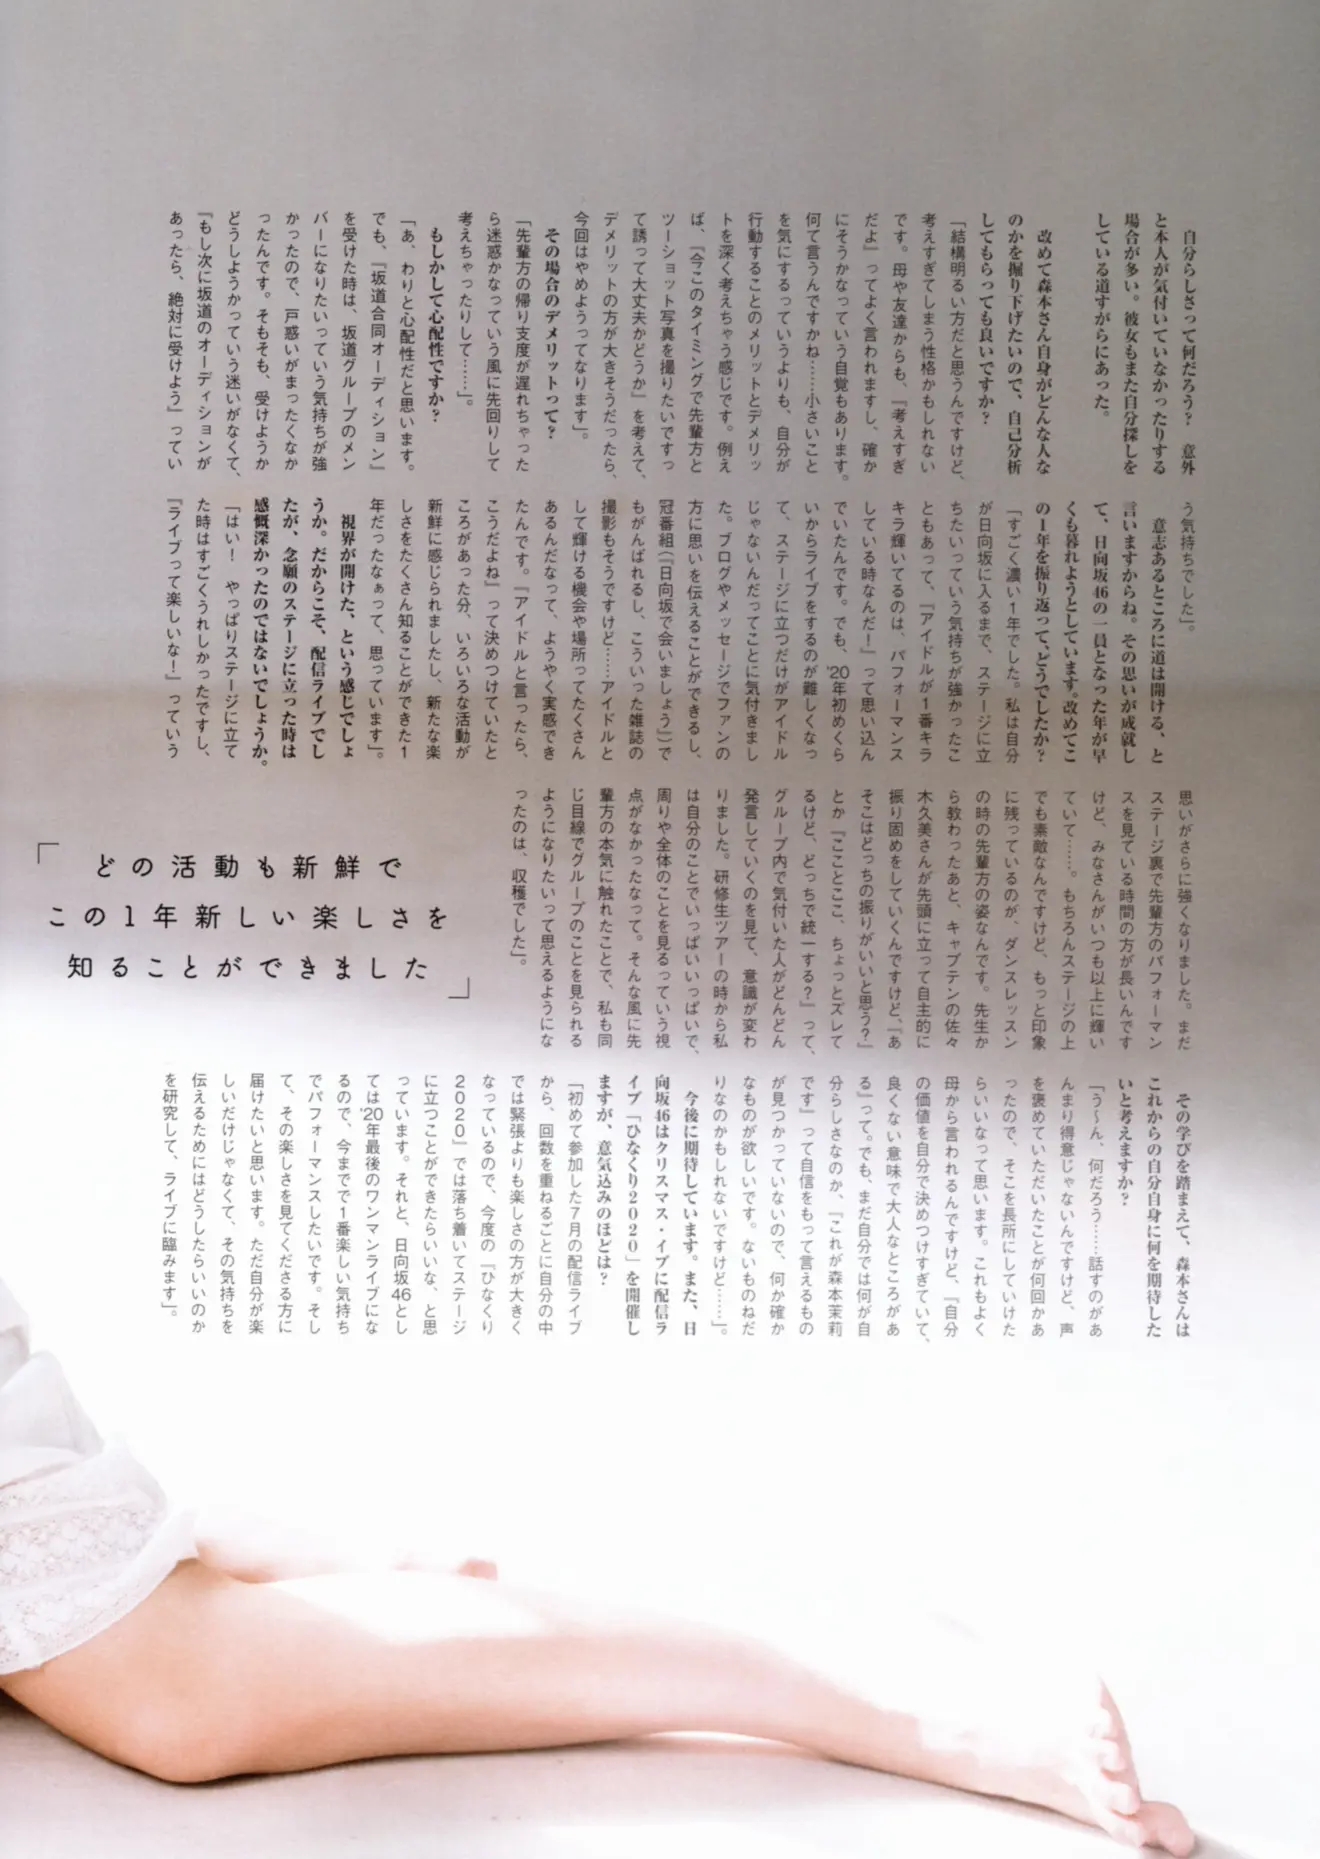 自分らしさって何だろう？　意外
と本人が気付いていなかったりする
場合が多い。彼女もまた自分探しを
している道すがらにあった。
改めて森本さん自身がどんな人な
のかを掘り下げたいので、自己分析
してもらっても良いですか？
「結構明るい方だと思うんですけど、
考えすぎてしまう性格かもしれない
です。母や友達からも、『考えすぎ
だよ』ってよく言われますし、確か
にそうかなっていう自覚もあります。
何て言うんですかね……小さいこと
を気にするっていうよりも、自分が
行動することのメリットとデメリッ
トを深く考えちゃう感じです。例え
ば、『今このタイミングで先輩方と
ツーショット写真を撮りたいですっ
て誘って大丈夫かどうか』を考えて、
デメリットの方が大きそうだったら、
今回はやめようってなります」。
その場合のデメリットって？
「先輩方の帰り支度が遅れちゃった
ら迷惑かなっていう風に先回りして
考えちゃったりして……」。
もしかして心配性ですか？
「あ、わりと心配性だと思います。
でも、『坂道合同オーディション』
を受けた時は、坂道グループのメン
バーになりたいっていう気持ちが強
かったので、戸惑いがまったくなか
ったんです。そもそも、受けようか
どうしようかっていう迷いがなくて、
『もし次に坂道のオーディションが
あったら、絶対に受けよう』ってい
う気持ちでした」。
意志あるところに道は開ける、と
言いますからね。その思いが成就し
て、日向坂46の一員となった年が早
くも暮れようとしています。改めてこ
の１年を振り返って、どうでしたか？
「すごく濃い１年でした。私は自分
が日向坂に入るまで、ステージに立
ちたいっていう気持ちが強かったこ
ともあって、『アイドルが１番キラ
キラ輝いてるのは、パフォーマンス
している時なんだ！』って思い込ん
でいたんです。でも、'20年初めくら
いからライブをするのが難しくなっ
て、ステージに立つだけがアイドル
じゃないんだってことに気付きまし
た。ブログやメッセージでファンの
方に思いを伝えることができるし、
冠番組（『日向坂で会いましょう』）で
もがんばれるし、こういった雑誌の
撮影もそうですけど……アイドルと
して輝ける機会や場所ってたくさん
あるんだなって、ようやく実感でき
たんです。『アイドルと言ったら、
こうだよね』って決めつけていたと
ころがあった分、いろいろな活動が
新鮮に感じられましたし、新たな楽
しさをたくさん知ることができた１
年だったなぁって、思っています」。
視界が開けた、という感じでしょ
うか。だからこそ、配信ライブでし
たが、念願のステージに立った時は
感慨深かったのではないでしょうか。
「はい！　やっぱりステージに立て
た時はすごくうれしかったですし、
『ライブって楽しいな！』っていう
思いがさらに強くなりました。まだ
ステージ裏で先輩方のパフォーマン
スを見ている時間の方が長いんです
けど、みなさんがいつも以上に輝い
ていて……。もちろんステージの上
でも素敵なんですけど、もっと印象
に残っているのが、ダンスレッスン
の時の先輩方の姿なんです。先生か
ら教わったあと、キャプテンの佐々
木久美さんが先頭に立って自主的に
振り固めをしていくんですけど、『あ
そこはどっちの振りがいいと思う？』
とか『こことここ、ちょっとズレて
るけど、どっちで統一する？』って、
グループ内で気付いた人がどんどん
発言していくのを見て、意識が変わ
りました。研修生ツアーの時から私
は自分のことでいっぱいいっぱいで、
周りや全体のことを見るっていう視
点がなかったなって。そんな風に先
輩方の本気に触れたことで、私も同
じ目線でグループのことを見られる
ようになりたいって思えるようにな
ったのは、収穫でした」。
「どの活動も新鮮で
この１年新しい楽しさを
知ることができました」
その学びを踏まえて、森本さんは
これからの自分自身に何を期待した
いと考えますか？
「う〜ん、何だろう……話すのがあ
んまり得意じゃないんですけど、声
を褒めていただいたことが何回かあ
ったので、そこを長所にしていけた
らいいなって思います。これもよく
母から言われるんですけど、『自分
の価値を自分で決めつけすぎていて、
良くない意味で大人なところがあ
る』って。でも、まだ自分では何が自
分らしさなのか、『これが森本茉莉
です』って自信をもって言えるもの
が見つかっていないので、何か確か
なものが欲しいです。ないものねだ
りなのかもしれないですけど……」。
今後に期待しています。また、日
向坂46はクリスマス・イブに配信ラ
イブ『ひなくり2020』を開催し
ますが、意気込みのほどは？
「初めて参加した７月の配信ライブ
から、回数を重ねるごとに自分の中
では緊張よりも楽しさの方が大きく
なっているので、今度の『ひなくり
2020』では落ち着いてステージ
に立つことができたらいいな、と思
っています。それと、日向坂46とし
ては'20年最後のワンマンライブにな
るので、今までで１番楽しい気持ち
でパフォーマンスしたいです。そし
て、その楽しさを見てくださる方に
届けたいと思います。ただ自分が楽
しいだけじゃなくて、その気持ちを
伝えるためにはどうしたらいいのか
を研究して、ライブに臨みます」。